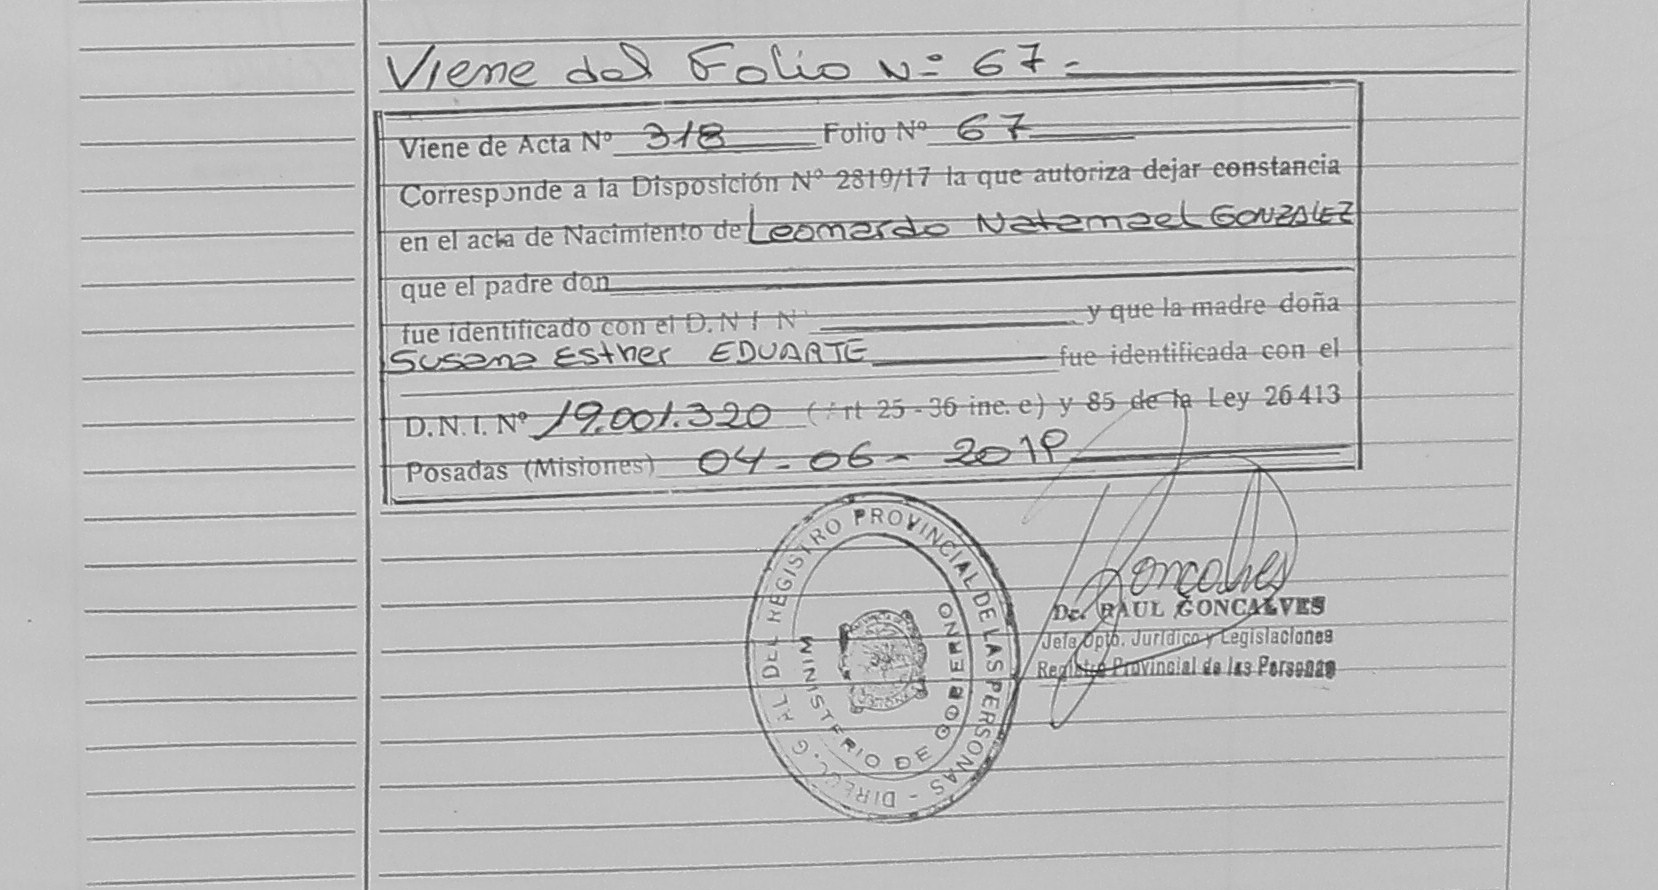 Viene del Folio Nº 67-
Viene de Acta Nº 318 Folio Nº 67
Corresponde a la Disposición Nº 2819/17 la que autoriza dejar constancia
en el acta de Nacimiento de Leonardo Natanael GONZALEZ
que el padre don
fue identificado con el D.N.I. Nº y que la madre doña
Susana Esther EDUARTE fue identificada con el
D.N.I. Nº 19.001.320 (Art 25-36 inc. e) y 85 de la Ley 26413
Posadas (Misiones) 04-06-2019
DIRECC. G RAL DEL REGISTRO PROVINCIAL DE LAS PERSONAS -
MINISTERIO DE GOBIERNO
Goncalves
Dr. RAUL GONCALVES
Jefe Dpto. Jurídico y Legislaciones
Registro Provincial de las Personas